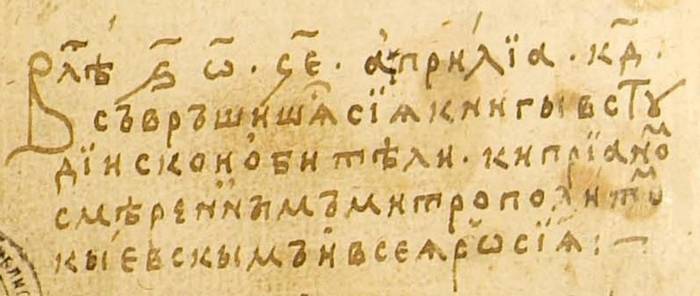 В лѣⷮ ҂ѕ҃ ѡ҃ · ҁ҃е · априлїа · к҃д ·
съвръшишѧⷭ сїѧ книгы в стꙋ
дїискои обитѣли · кипрїаноⷨ
смѣреннымъ митрополитоⷨ
кыевскымъ и всеѧ рѡсїѧ :—